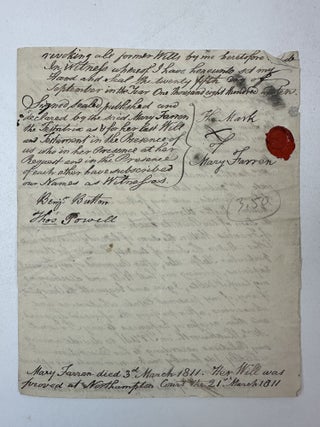 revoking all former Wills by me heretofore
In Witness whereof I have hereunto set my
Hand and Seal the twenty fifth day of
September in the Year One Thousand eight Hundred
Signed, sealed, published and
declared by the said Mary Farren
the Testatrix as & for her last Will
and Testament in the Presence of
us who in her Presence at her
Request and in the Presence
of each other have subscribed
our Names as Witnesses
Benjn
Thos Powell
The Mark
of
Mary Farren
3.50
Mary Farren died 3d March 1811. Her Will was
proved at Northampton Court the 21st March 1811